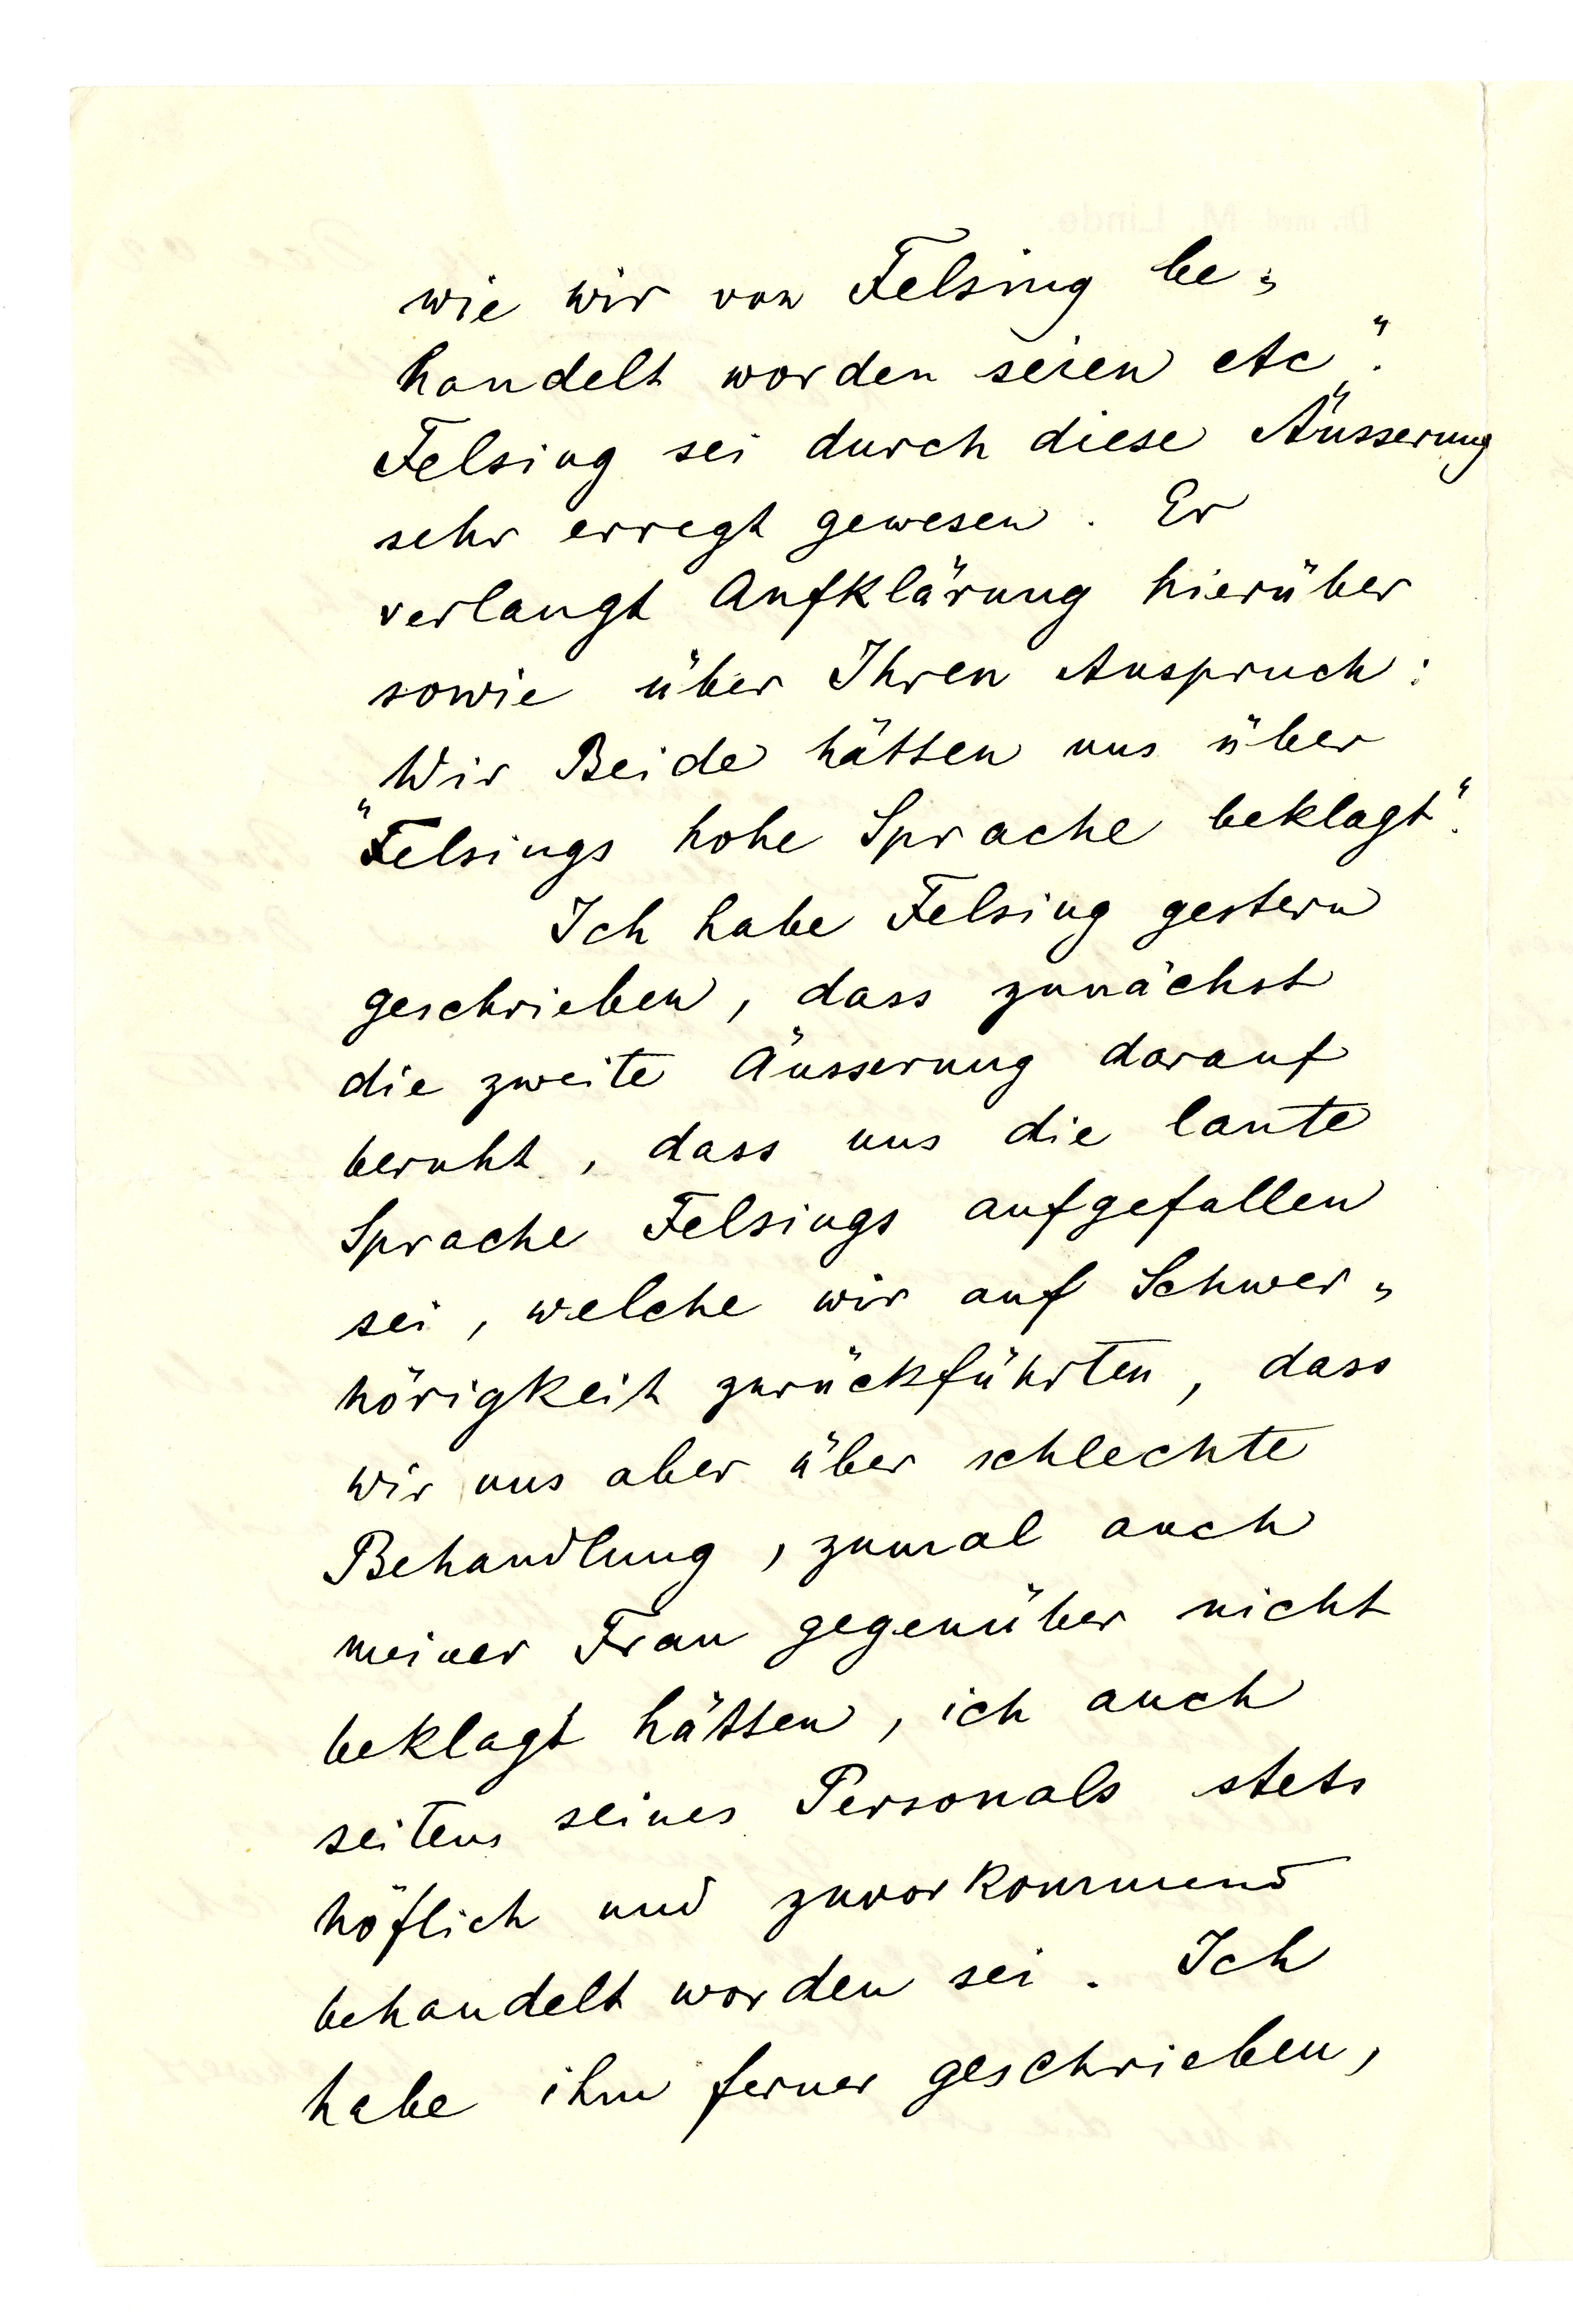 wie wir von Felsing be-
handelt worden seien etc".
Felsing sei durch diese Äusserung
sehr erregt gewesen. Er
verlangt Aufklärung hierüber
sowie über Ihren Ausspruch:
Wir Beide hätten uns über
"Felsings hohe Sprache beklagt".
Ich habe Felsing gestern
geschrieben, dass zunächst
die zweite Äusserung darauf
beruht, dass uns die laute
Sprache Felsings aufgefallen
sei, welche wir auf Schwer-
hörigkeit zurückführten, dass
wir uns aber über schlechte
Behandlung, zumal auch
meiner Frau gegenüber nicht
beklagt hätten, ich auch
seitens seines Personals stets
höflich und zuvorkommend
behandelt worden sei. Ich
habe ihm ferner geschrieben,